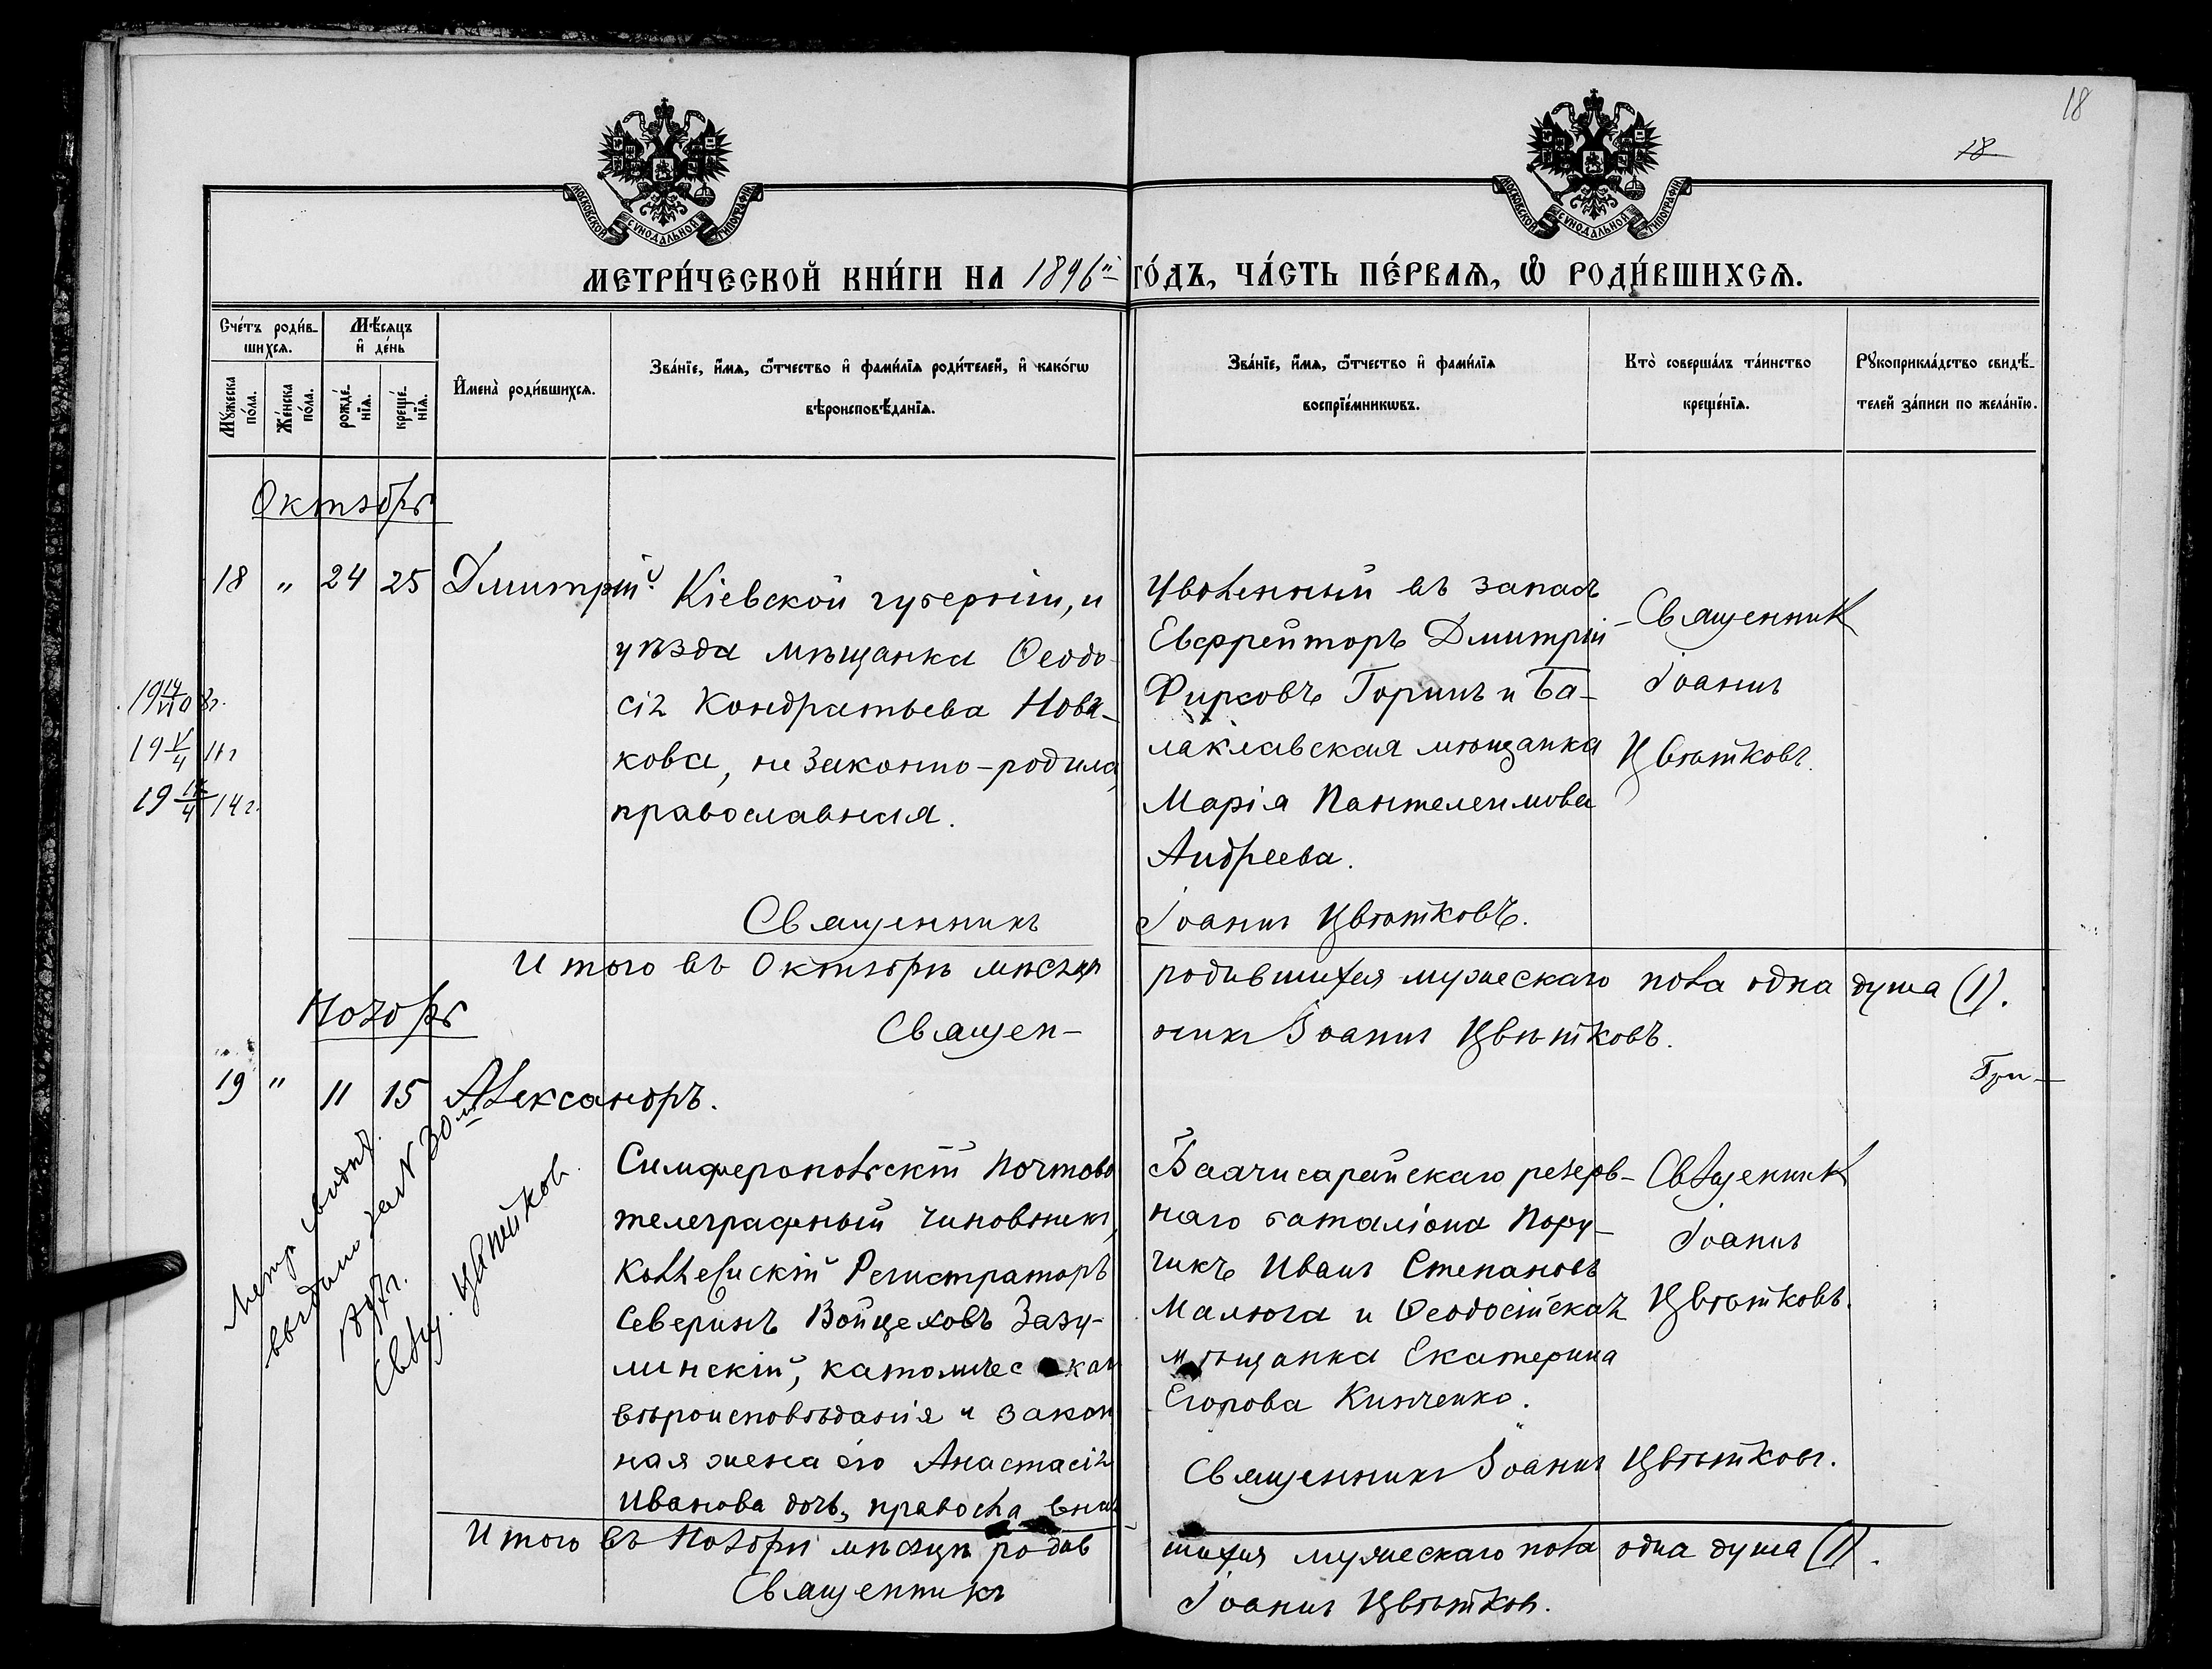 18
18
МОСКОВСКОЙ СѴНОДАЛЬНОЙ ТИПОГРАФІИ
МОСКОВСКОЙ СѴНОДАЛЬНОЙ ТИПОГРАФІИ
МЕТРИ́ЧЕСКОЙ КНИ́ГИ НА 1896й ГО́ДЪ, ЧА́СТЬ ПЕ́РВАѦ, Ѽ РОДИ́ВШИХСѦ.
Сче́тъ роди́в-
шихсѧ.
Мѣ́сѧцъ
и де́нь
Мꙋ́жеска
по́ла.
Же́нска
по́ла.
рожде́-
нїѧ.
креще́-
нїѧ.
И҆мена̀ роди́вшихсѧ.
Зва́нїе, и҆́мѧ, ѻ҆́тчество и҆ фами́лїѧ роди́телей, и҆ како́гѡ
вѣроисповѣ́данїѧ.
Зва́нїе, и҆́мѧ, ѻ҆́тчество и҆ фами́лїѧ
воспрїе́мникѡвъ.
Кто̀ соверша́лъ та́инство
креще́нїѧ.
Рꙋкоприкла́дство свидѣ́-
телей за́писи по жела́нїю.
Октябрь
18 " 24 25 Дмитрій.
Кіевской губерніи, и
уѣзда мѣщанка Ѳеодо-
сія Кондратьева Нова-
кова, незаконно-родила,
православная.
Уволенный въ запасъ
Евфрейторъ Дмитрій
Фирсовъ Горинъ и Ба-
лаклавская мѣщанка
Марія Пантелеимова
Андреева.
Священник
Іоаннъ
Цвѣтковъ.
19 08г.
19 V/4 11г
19 14г.
Священникъ Іоаннъ Цвѣтковъ.
Итого въ Октябрѣ мѣсяцѣ родившихся мужескаго пола одна душа (1).
Священ-
никъ Іоаннъ Цвѣтковъ.
Ноябрь
19 " 11 15 Александръ.
Симферопольскій почтово
телеграфный чиновникъ,
Коллежскій Регистраторъ
Северинъ Войцеховъ Зазу-
линскій, католическаго
вѣроисповѣданія и закон
ная жена его Анастасія
Иванова дочь, православная
Бахчисарайскаго резерв-
наго баталіона Пору-
чикъ Иванъ Степановъ
Малюга и Ѳеодосійская
мѣщанка Екатерина
Егорова Кинченко.
Священник
Іоаннъ
Цвѣтковъ.
Метр. свидѣт.
выдано за № 30м
Свящ. Цвѣтков.
Священникъ Іоаннъ Цвѣтковъ.
Итого въ Ноябрѣ мѣсяцѣ родив
шихся мужескаго пола одна душа (1).
Священникъ Іоаннъ Цвѣтков.